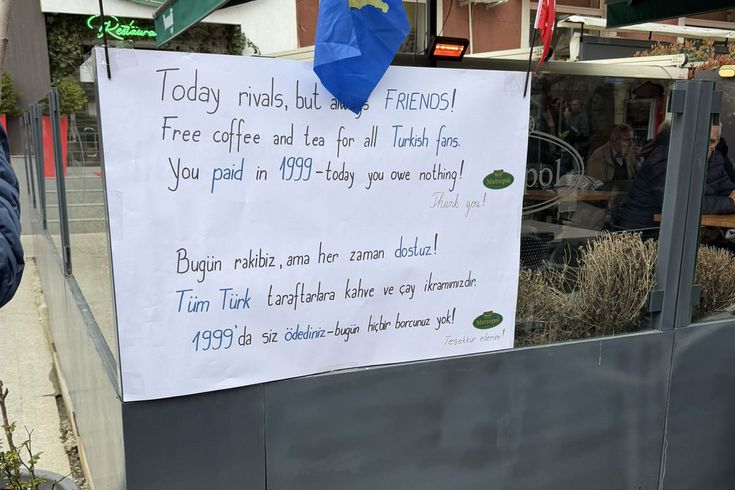 Restaurant
Today rivals, but always FRIENDS!
Free coffee and tea for all Turkish fans.
You paid in 1999-today you owe nothing!
Metropol
Thank you!
pol
Bugün rakibiz, ama her zaman dostuz!
Tüm Türk taraftarlara kahve ve çay ikramımızdır.
1999'da siz ödediniz-bugün hiçbir borcunuz yok!
Metropol
Teşekkür ederim!